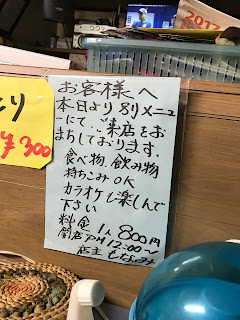 2017
とり
¥300
お客様へ
本日より別メニュ
ーにて、ご来店をお
まちしております。
食べ物、飲み物
持ちこみOK
カラオケも楽しんで
下さい
料金 1人 800円
閉店PM12:00~
店主